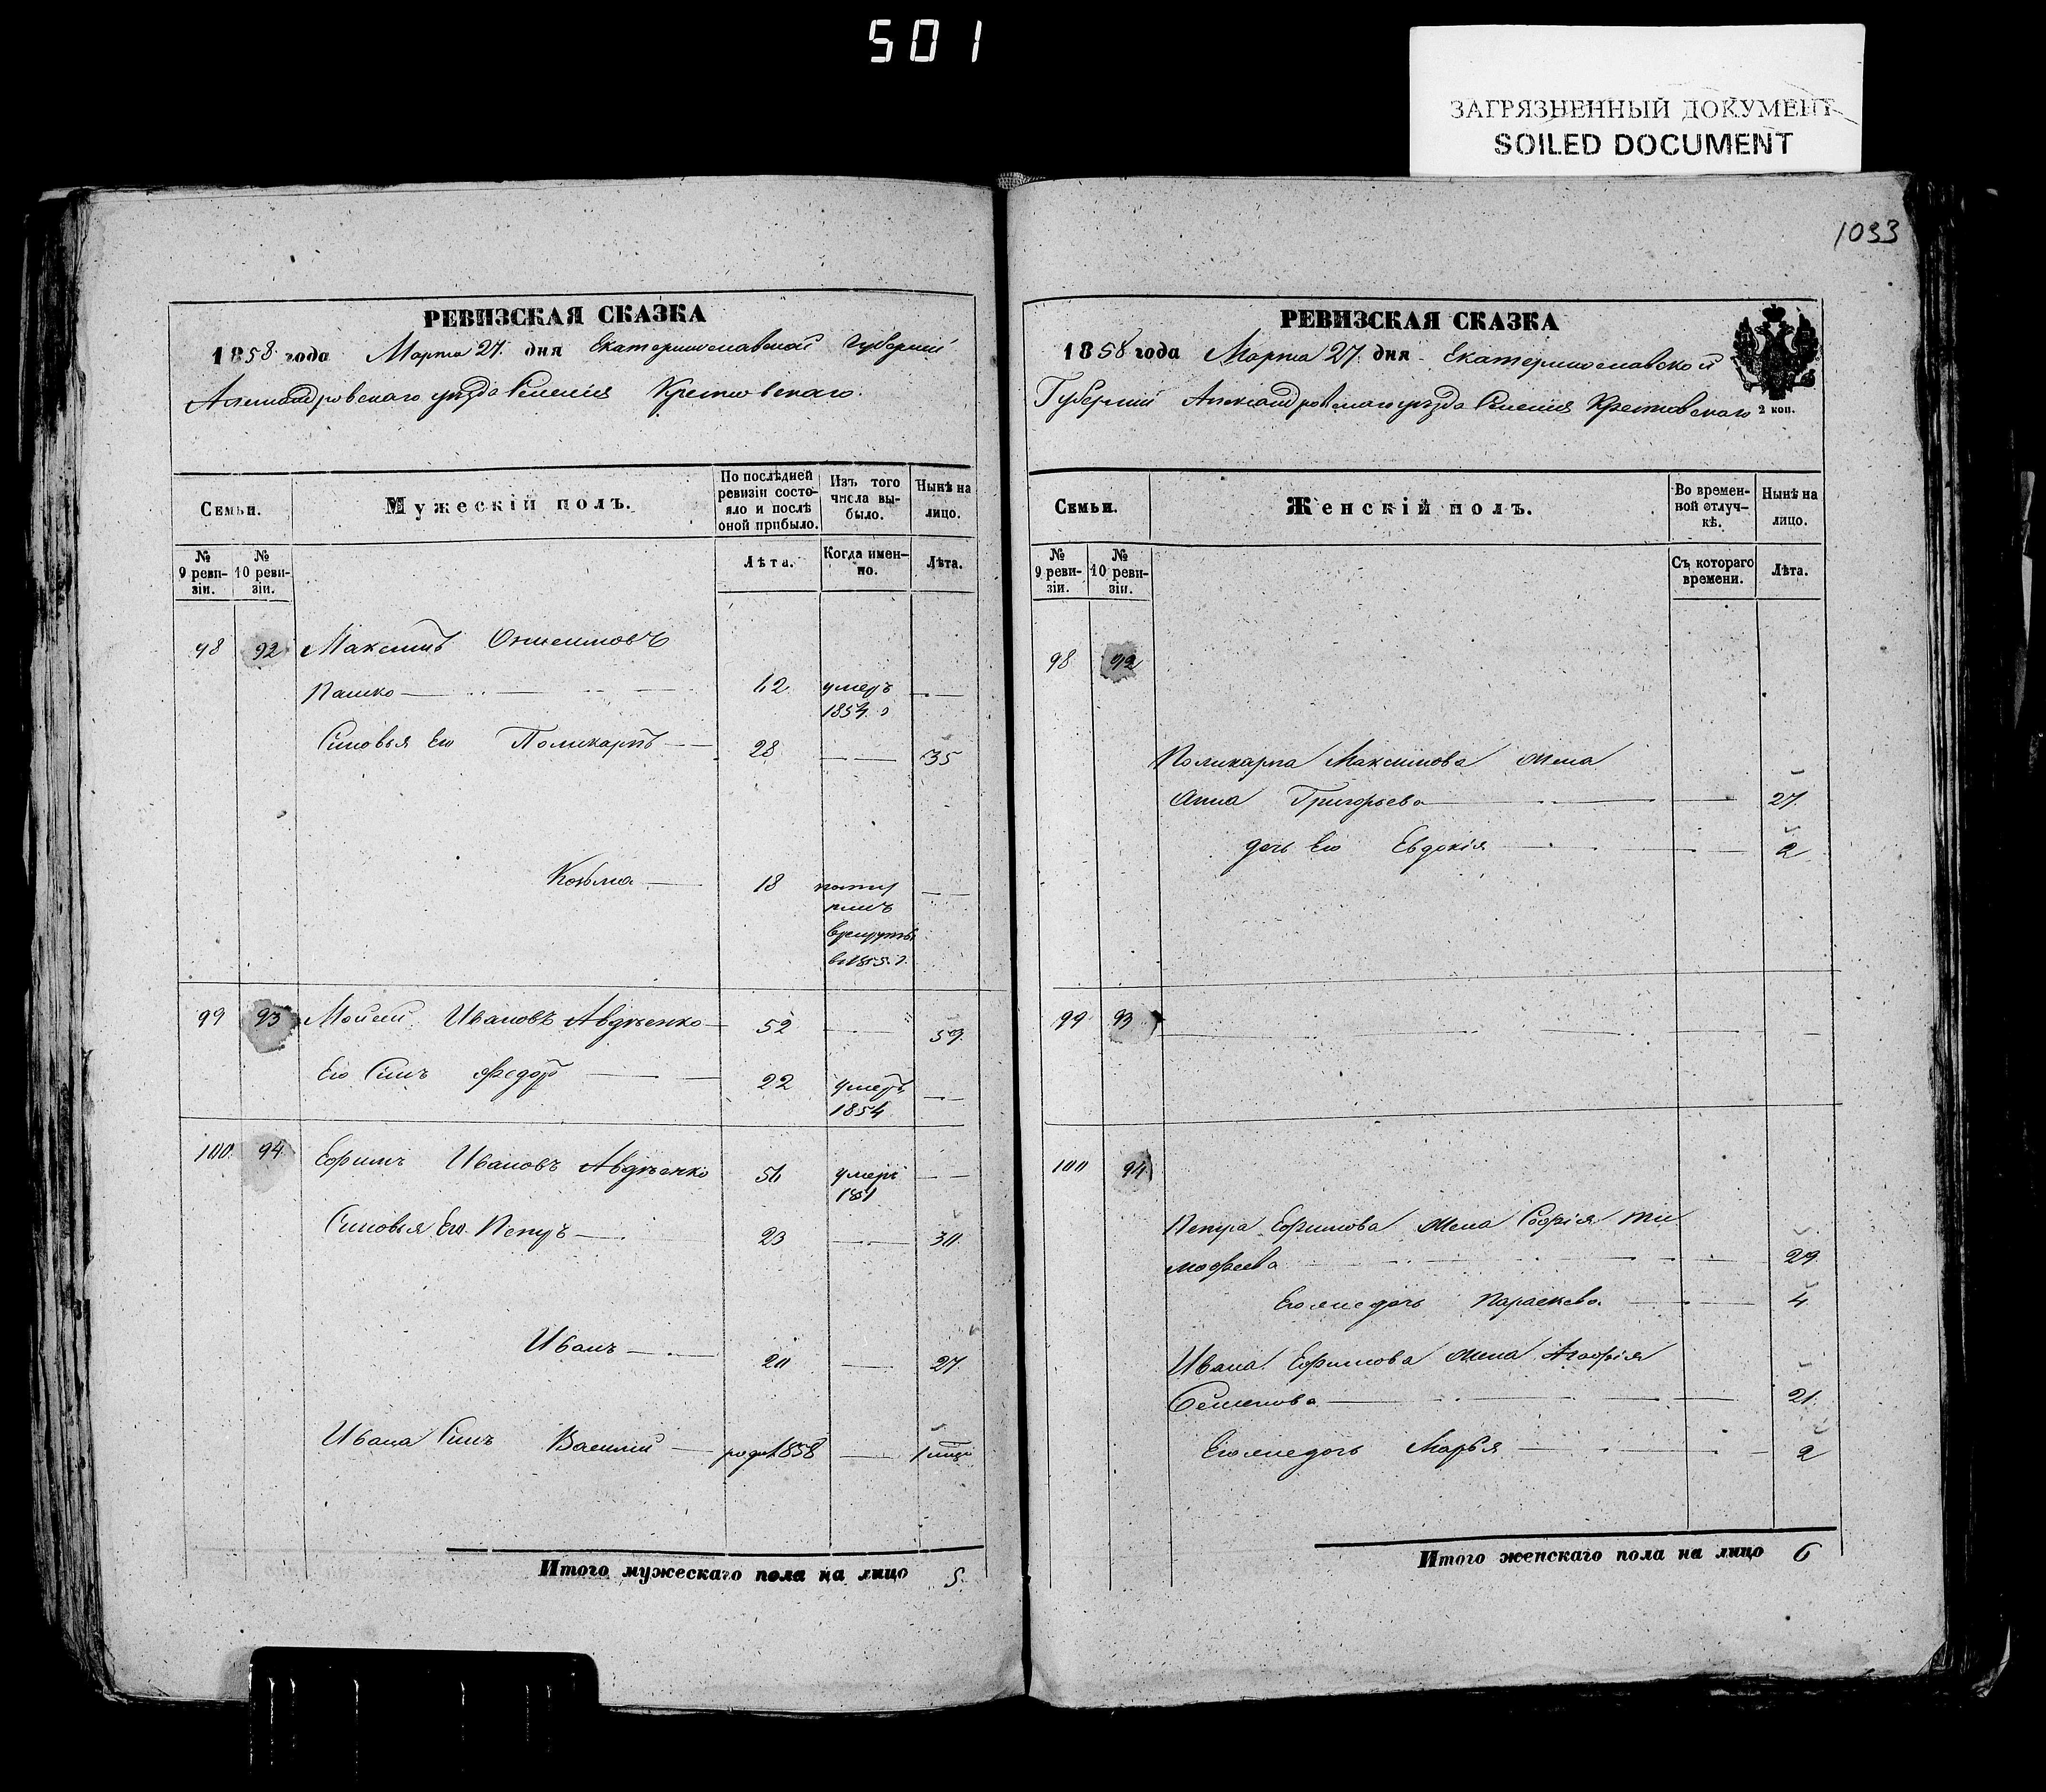 501
ЗАГРЯЗНЕННЫЙ ДОКУМЕНТ
SOILED DOCUMENT
РЕВИЗСКАЯ СКАЗКА
1858 года Марта 27 дня Екатеринославской Губернии
Александровскаго уезда Селения Крестовскаго.
Семьи.
Мужескій полъ.
По послѣдней ревизіи состояло и послѣ оной прибыло.
Изъ того числа выбыло.
Нынѣ на лицо.
№ 9 ревизіи.
№ 10 ревизіи.
Лѣта.
Когда именно.
Лѣта.
98 92 Максимъ Онисимовъ
Пашко 42 умеръ
1854. —
Сыновья Его Поликарпъ 28 — 35
Козьма 18
рекруты
в 1855 г.
99 93 Мойсей Ивановъ Авдѣенко 52 — 59.
Его Сынъ Федоръ 22 умеръ
1854 —
100 94 Ефимъ Ивановъ Авдѣенко 56 умеръ —
1851
Сыновья Его Петръ 23 — 30.
Иванъ 20 — 27.
Ивана Сынъ Василий род. 1858 — 1 мця
Итого мужескаго пола на лицо 5.
1033
РЕВИЗСКАЯ СКАЗКА
1858 года Марта 27. дня Екатеринославской
Губернии Александровскаго уезда Селения Крестовскаго
2 коп.
Семьи.
Женскій полъ.
Во временной отлучкѣ.
Нынѣ на лицо.
№ 9 ревизіи.
№ 10 ревизіи.
Съ котораго времени.
Лѣта.
98 92
Поликарпа Максимова жена
Анна Григорьева — 27.
дочь Его Евдокія — 2
99 93 — — —
100 94
Петра Ефимова жена Софія Ти
мофеева — 29
Его же дочь Параскева — 4
Ивана Ефимова жена Агафія
Семенова — 21.
Его же дочь Марья — 2
Итого женскаго пола на лицо 6